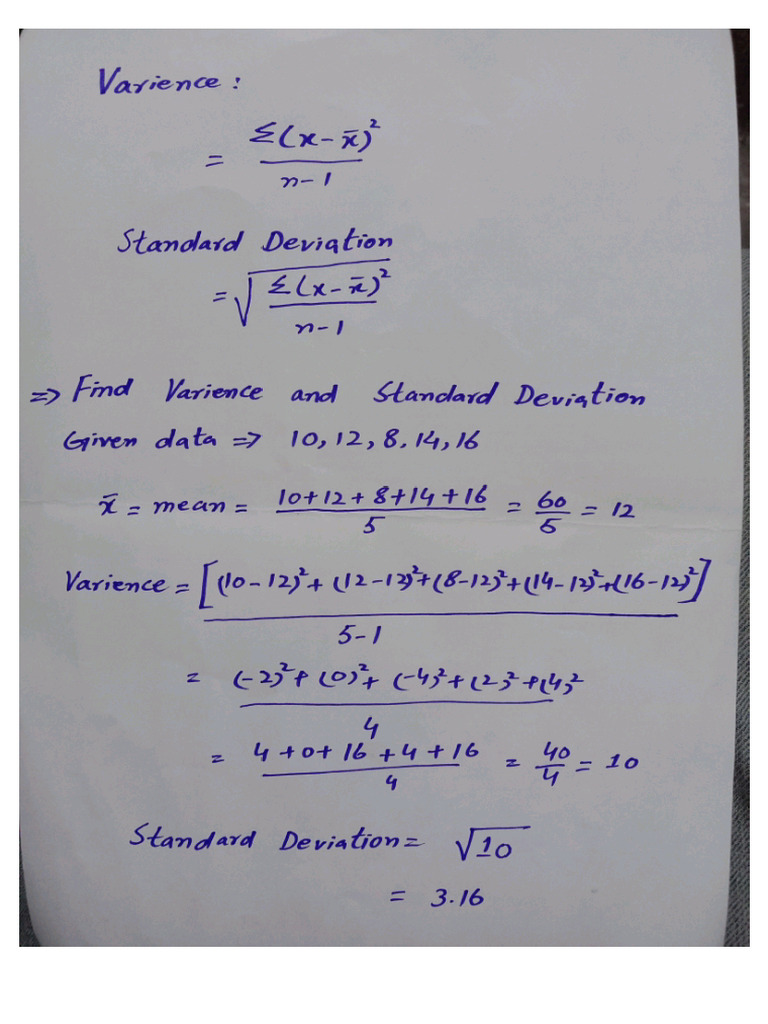 Varience :
= Σ(x-x̄)²
n-1
Standard Deviation
= √Σ(x-x̄)²
n-1
=> Find Varience and Standard Deviation
Given data => 10, 12, 8, 14, 16
x̄ = mean = 10+12+8+14+16 = 60 = 12
5 5
Varience = [(10-12)²+(12-12)²+(8-12)²+(14-12)²+(16-12)²]
5-1
= (-2)²+(0)²+(-4)²+(2)²+(4)²
4
= 4+0+16+4+16 = 40 = 10
4 4
Standard Deviation = √10
= 3.16